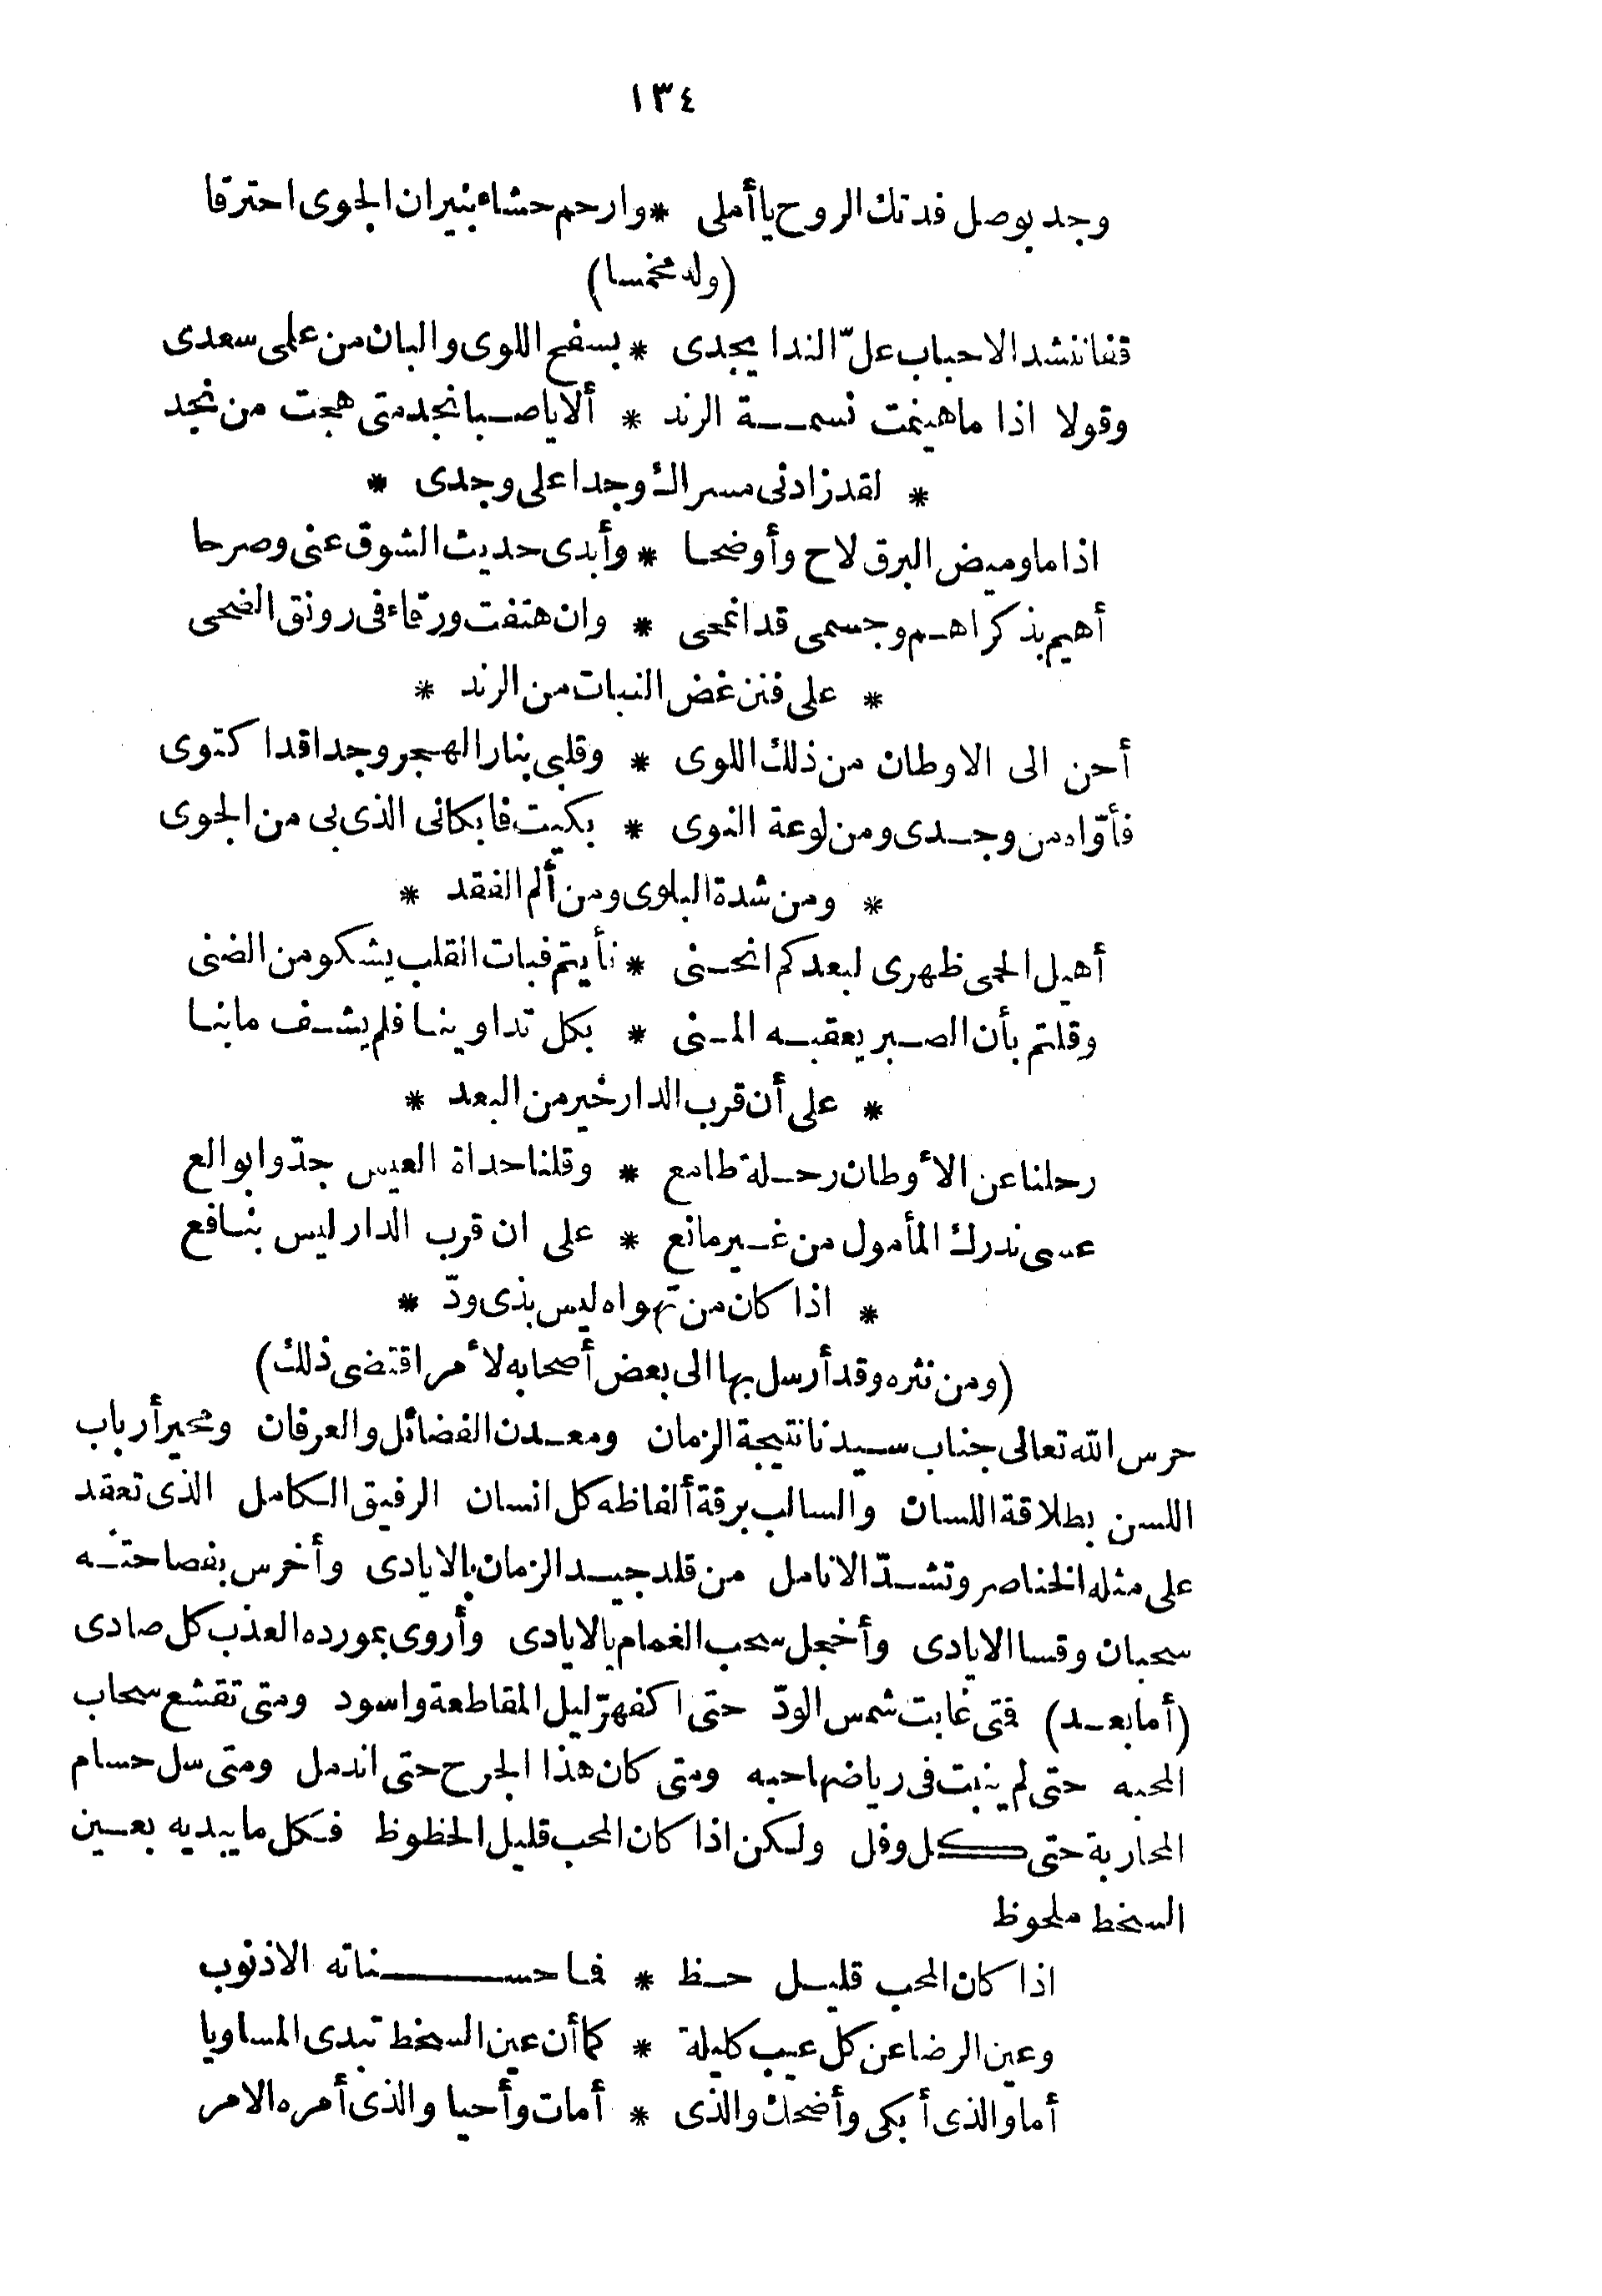 ١٣٤
وجد بوصل فدتك الروح ياأملى * وارحم حشاه بنيران الجوى احترقا
(وله مخمسا)
قفا ننشد الاحباب علّ الندا يجدى * بسفح اللوى والبان من علمى سعدى
وقولا اذا ما هينمت نسمة الرند * ألا ياصبا نجد متى هجت من نجد
* لقد زادنى مسراك وجدا على وجدى *
اذا ما وميض البرق لاح وأوضحا * وأبدى حديث الشوق عنى وصرحا
أهيم بذكراهم وجسمى قد انمحى * وان هتفت ورقاء فى رونق الضحى
* على فنن غض النبات من الرند *
أحن الى الاوطان من ذلك اللوى * وقلبى بنار الهجر وجدا قد اكتوى
فأوّاه من وجدى ومن لوعة النوى * بكيت فابكانى الذى بى من الجوى
* ومن شدة البلوى ومن ألم الفقد *
أهيل الحمى ظهرى لبعدكم انحنى * نأيتم فبات القلب يشكو من الضنى
وقلتم بأن الصبر يعقبه المنى * بكل تداوينا فلم يشف مابنا
* على أن قرب الدار خير من البعد *
رحلنا عن الأوطان رحلة طامع * وقلنا حداة العيس جدّوا بوالع
عسى ندرك المأمول من غير مانع * على ان قرب الدار ليس بنافع
* اذا كان من تهواه ليس بذى ودّ *
(ومن نثره وقد أرسل بها الى بعض أصحابه لأمر اقتضى ذلك)
حرس الله تعالى جناب سيدنا نتيجة الزمان ومعدن الفضائل والعرفان ومحير أرباب
اللسن بطلاقة اللسان والسالب برقة ألفاظه كل انسان الرفيق الكامل الذى تعقد
على مثله الخناصر وتشدّ الانامل من قلد جيد الزمان بالايادى وأخرس بفصاحته
سحبان وقسا الايادى وأخجل سحب الغمام بالايادى وأروى بمورده العذب كل صادى
(أما بعد) فتى غابت شمس الودّ حتى اكفهرّ ليل المقاطعة واسود ومتى تقشع سحاب
المحبه حتى لم ينبت فى رياضها حبه ومتى كان هذا الجرح حتى اندمل ومتى سل حسام
المحاربة حتى كل وفل ولكن اذا كان المحب قليل الحظوظ فكل مايبديه بعين
السخط ملحوظ
اذا كان المحب قليل حظ * فما حسناته الا ذنوب
وعين الرضا عن كل عيب كليلة * كما أن عين السخط تبدى المساويا
أما والذى أبكى وأضحك والذى * أمات وأحيا والذى أمره الامر